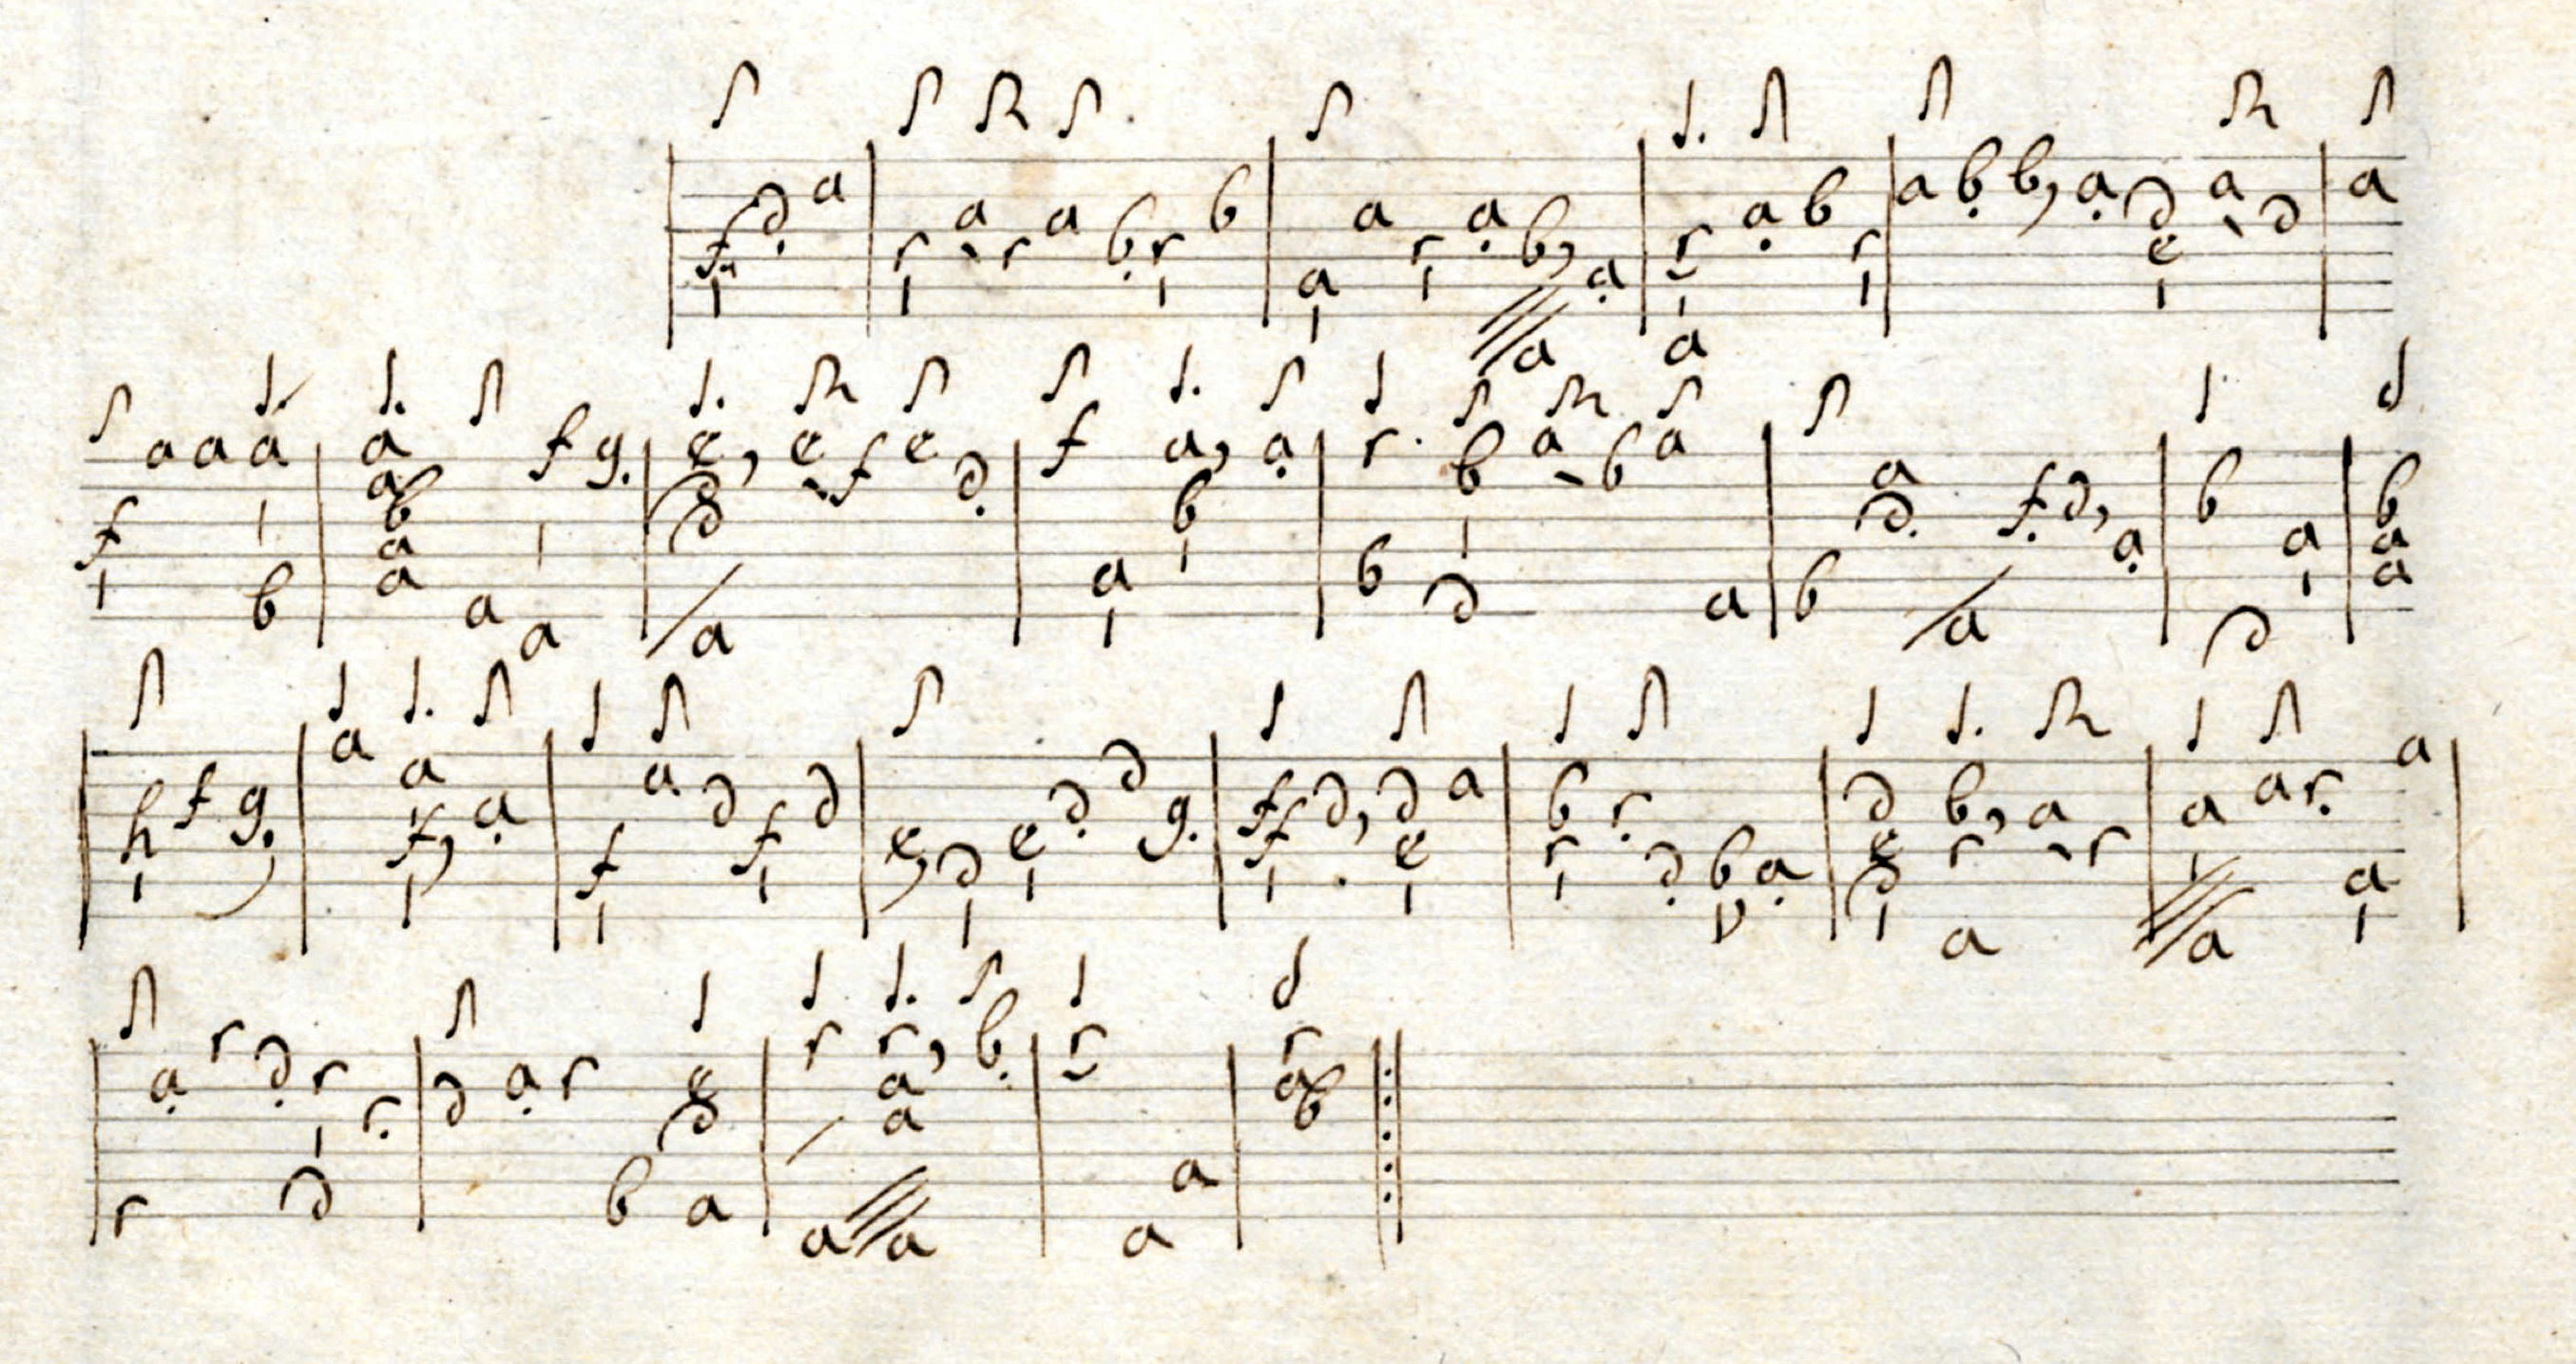 f d a | r a r a b r b | a a r a b, a a | r a a b r | a b b, a d e a r d | a
f a a a b | a a b a a a a f g | e, d a e f e d | f a a, b a | r b b d a b a a | b a d a f d, a | b d a | b a a
h f g | a a f, a | f a d f d | e, d e d d g | f f d, d e a | b r r d b a | d e d b, r a a r | a a a r a a |
r a r d r d r | d a r b e d a | r a r, a a a b | r a a | r a b :|